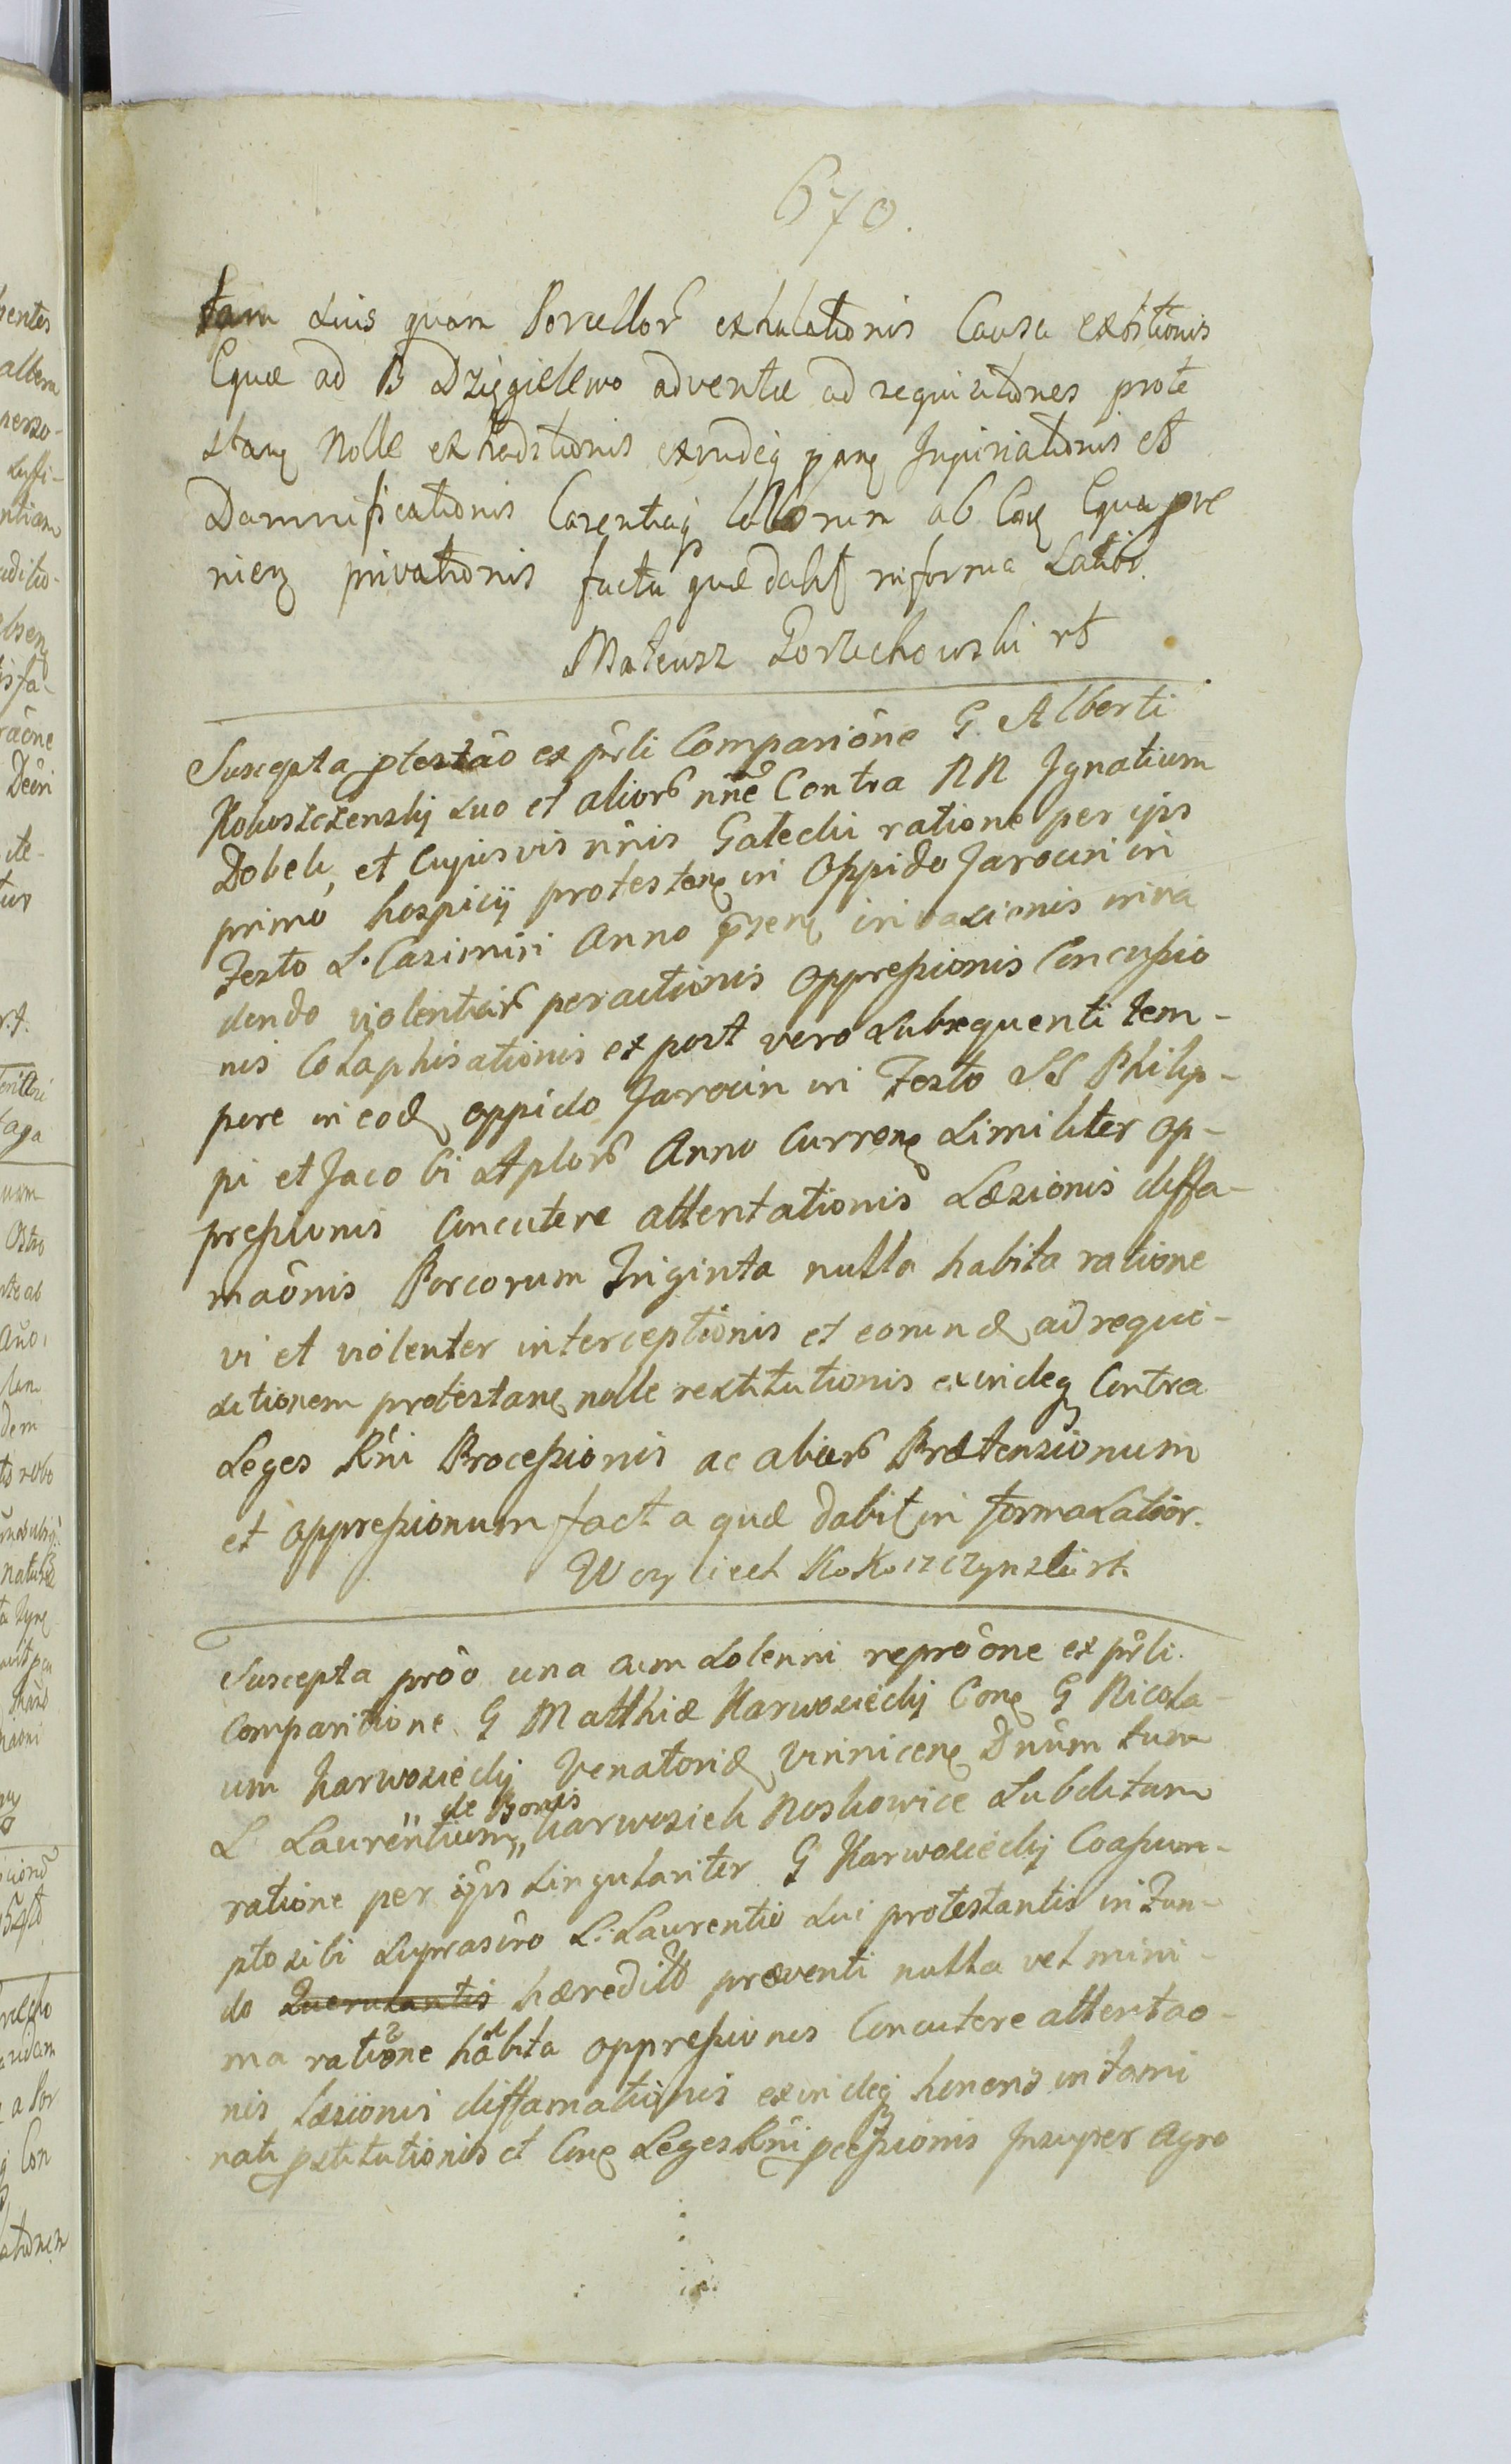 670.
tam suis quam Porcellor exhalationis Causa exbitionis
Equæ ad B Dzięgielewo adventæ ad requisitiones prote
stan nolle extraditionis exindeq Injuriationis et
Damnificationis Carentiaq laborum ab Equa pre
nien privationis facta quæ dabit in forma Latior.
Mateusz Porzechowski rt
Suscepta ptestao ex prli Comparione G. Alberti
Kokoszczenskij suo et alior nne Contra NN Ignatium
Dobek, et Cujusvis nnis Gatecki ratione per ips
primo hospicij protesten in Oppido Jarocin in
Festo S. Casimiri Anno psen invasionis inva
dendo violentiar peractionis oppressionis Concussio
nis Colaphisationis ex post vero subsequenti tem-
pore in eod oppido Jarocin in Festo SS Philip-
pi et Jacobi Aplor Anno Curren similiter op-
pressionis Concutere attentationis Læsionis diffa-
maonis Porcorum Triginta nulla habita ratione
vi et violenter interceptionis et eorund ad requi-
sitionem protestan nolle restitutionis exindeq Contra
Leges Rni Processionis ac alior Prætensionum
et oppressionum facta quæ dabit in forma Latior.
Woyciech Kokoszczynski rt.
Suscepta proo una cum solenni reproone ex prli.
Comparitione G Matthiæ Karwosieckij Con G Nicola-
um Karwosieckij Venatorid Vinnicen Dnum tum
L Laurentium de Bonis Karwosieki Noskowice subditum
ratione per ips singulariter G Karwosieckij Coassum-
pto sibi suprascro L. Laurentio sui protestantis in Fun-
do Querulantis hæredit præventi nulla vel mini-
ma ratione habita oppressionis Concutere attentao-
nis læsionis diffamationis exindeq honoris intami
nati pstitutionis et Con Leges Rni pcessionis Insuper agro